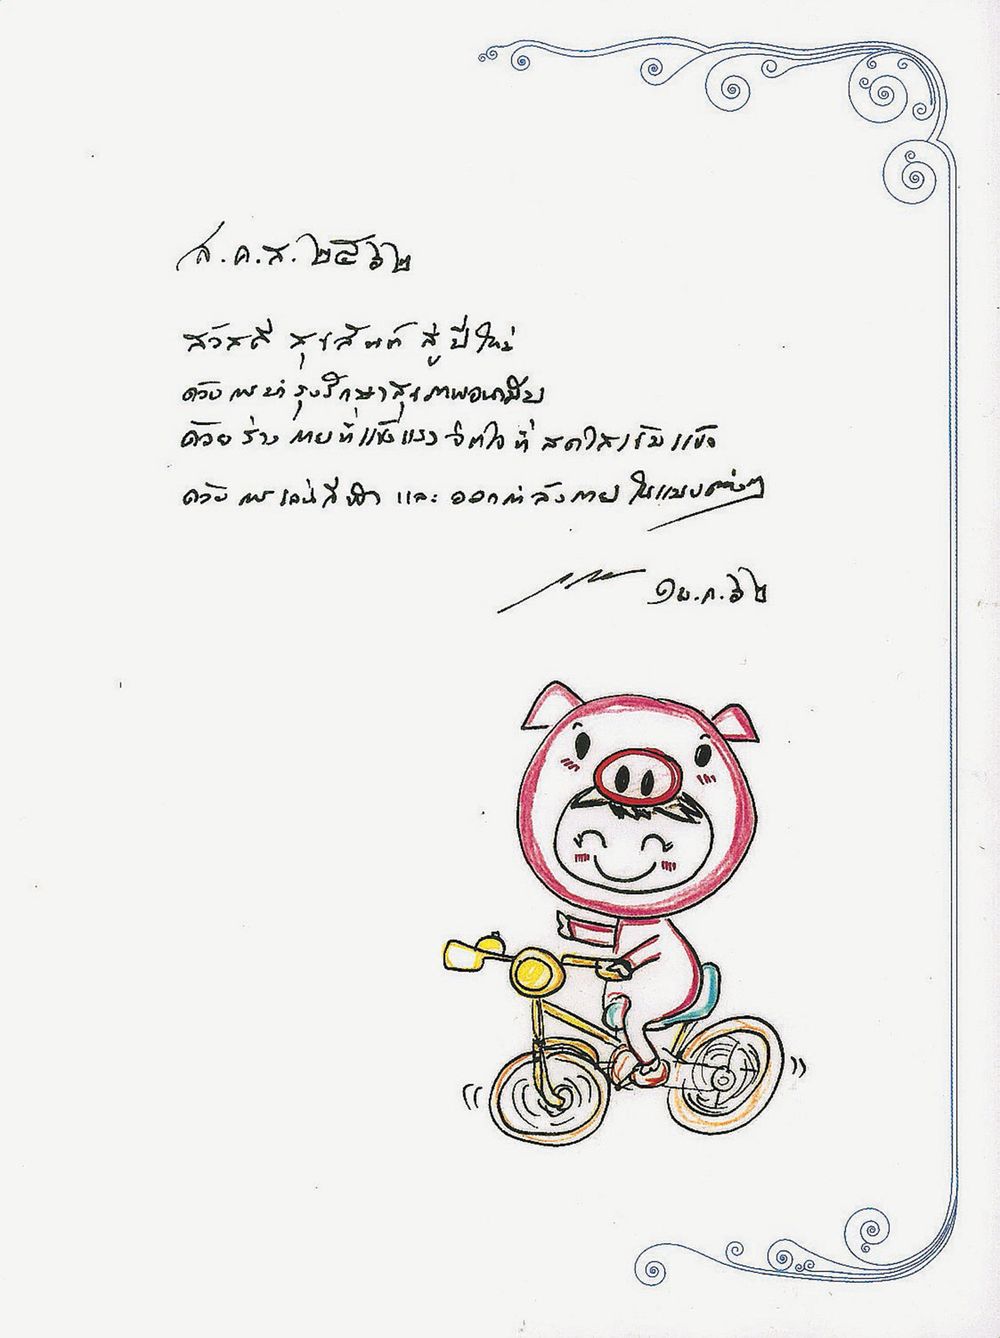 ส.ค.ส. ๒๕๖๒
สวัสดี สุขสันต์ สู่ ปีใหม่
ด้วยการบำรุงรักษาสุขภาพอนามัย
ด้วย ร่างกายที่แข็งแรง จิตใจที่ สดใสเข้มแข็ง
ด้วย การเล่นกีฬา และ ออกกำลังกาย ในแบบต่างๆ
๑ ม.ค. ๖๒